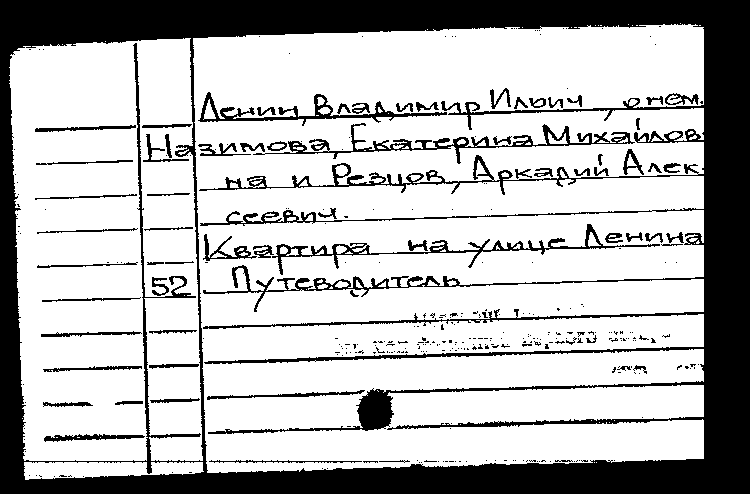 Ленин, Владимир Ильич, о нем.
Назимова, Екатерина Михайлов-
на и Резцов, Аркадий Алек-
сеевич.
Квартира на улице Ленина
52 Путеводитель